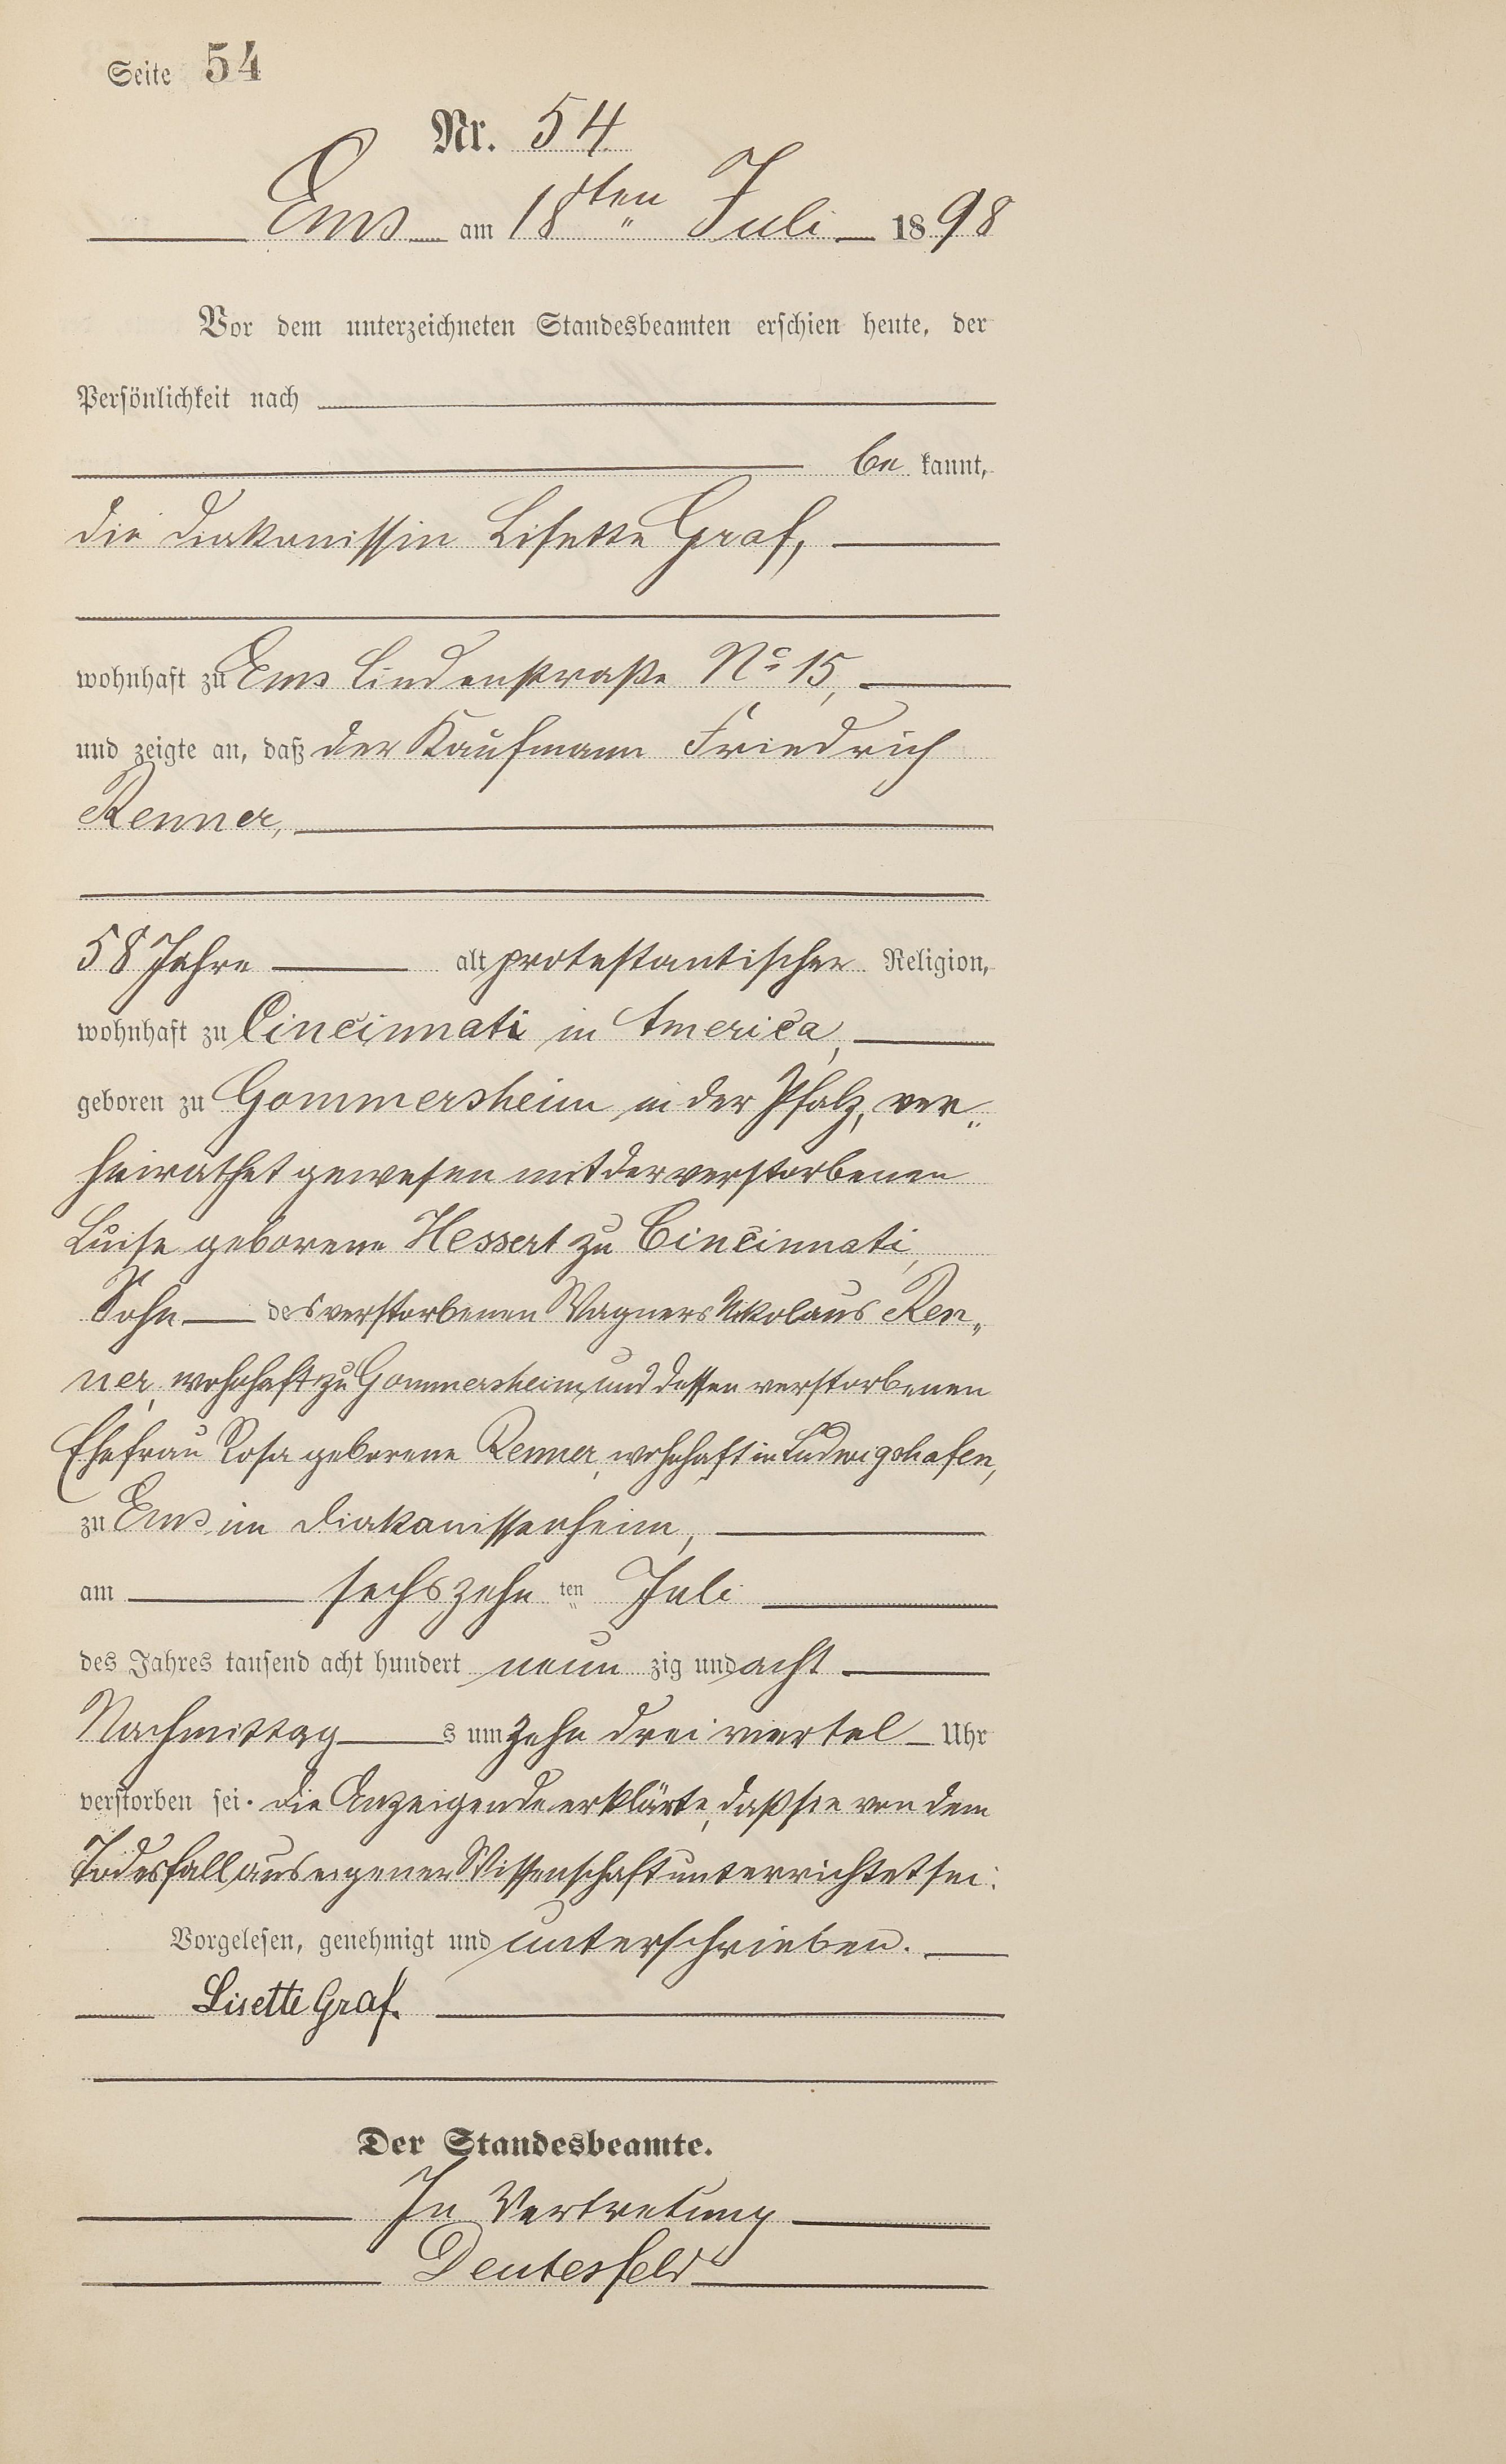 Seite 54
Nr. 54
Ems am 18ten Juli 1898
Vor dem unterzeichneten Standesbeamten erschien heute, der
Persönlichkeit nach
bekannt,
die Diakonissin Lisette Graf,
wohnhaft zu Ems Lindenstraße No 15,
und zeigte an, daß der Kaufmann Friedrich
Renner,
58 Jahre alt protestantischer Religion,
wohnhaft zu Cincinnati in America,
geboren zu Gommersheim in der Pfalz, ver„
heirathet gewesen mit der verstorbenen
Luise geborene Hessert zu Cincinnati,
Sohn des verstorbenen Wagners Nikolaus Ren„
ner, wohnhaft zu Gommersheim und dessen verstorbenen
Ehefrau Rosa geborene Renner, wohnhaft in Ludwigshafen,
zu Ems im Diakonissenheim,
am sechszehnten Juli
des Jahres tausend acht hundert neunzig und acht
Nachmittags um zehn drei viertel Uhr
verstorben sei. Die Anzeigende erklärte, daß sie von dem
Todesfall aus eigener Wissenschaft unterrichtet sei.
Vorgelesen, genehmigt und unterschrieben.
Lisette Graf.
Der Standesbeamte.
In Vertretung
Deutesfeld